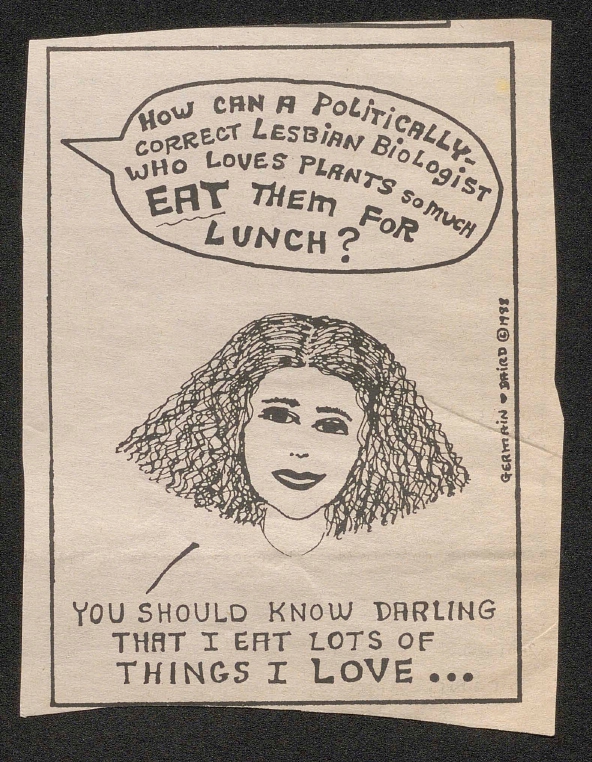 HOW CAN A POLITICALLY-
CORRECT LESBIAN BIOLOGIST
WHO LOVES PLANTS SO MUCH
EAT THEM FOR
LUNCH?
GERMAIN ♥ BAIRD © 1988
YOU SHOULD KNOW DARLING
THAT I EAT LOTS OF
THINGS I LOVE...